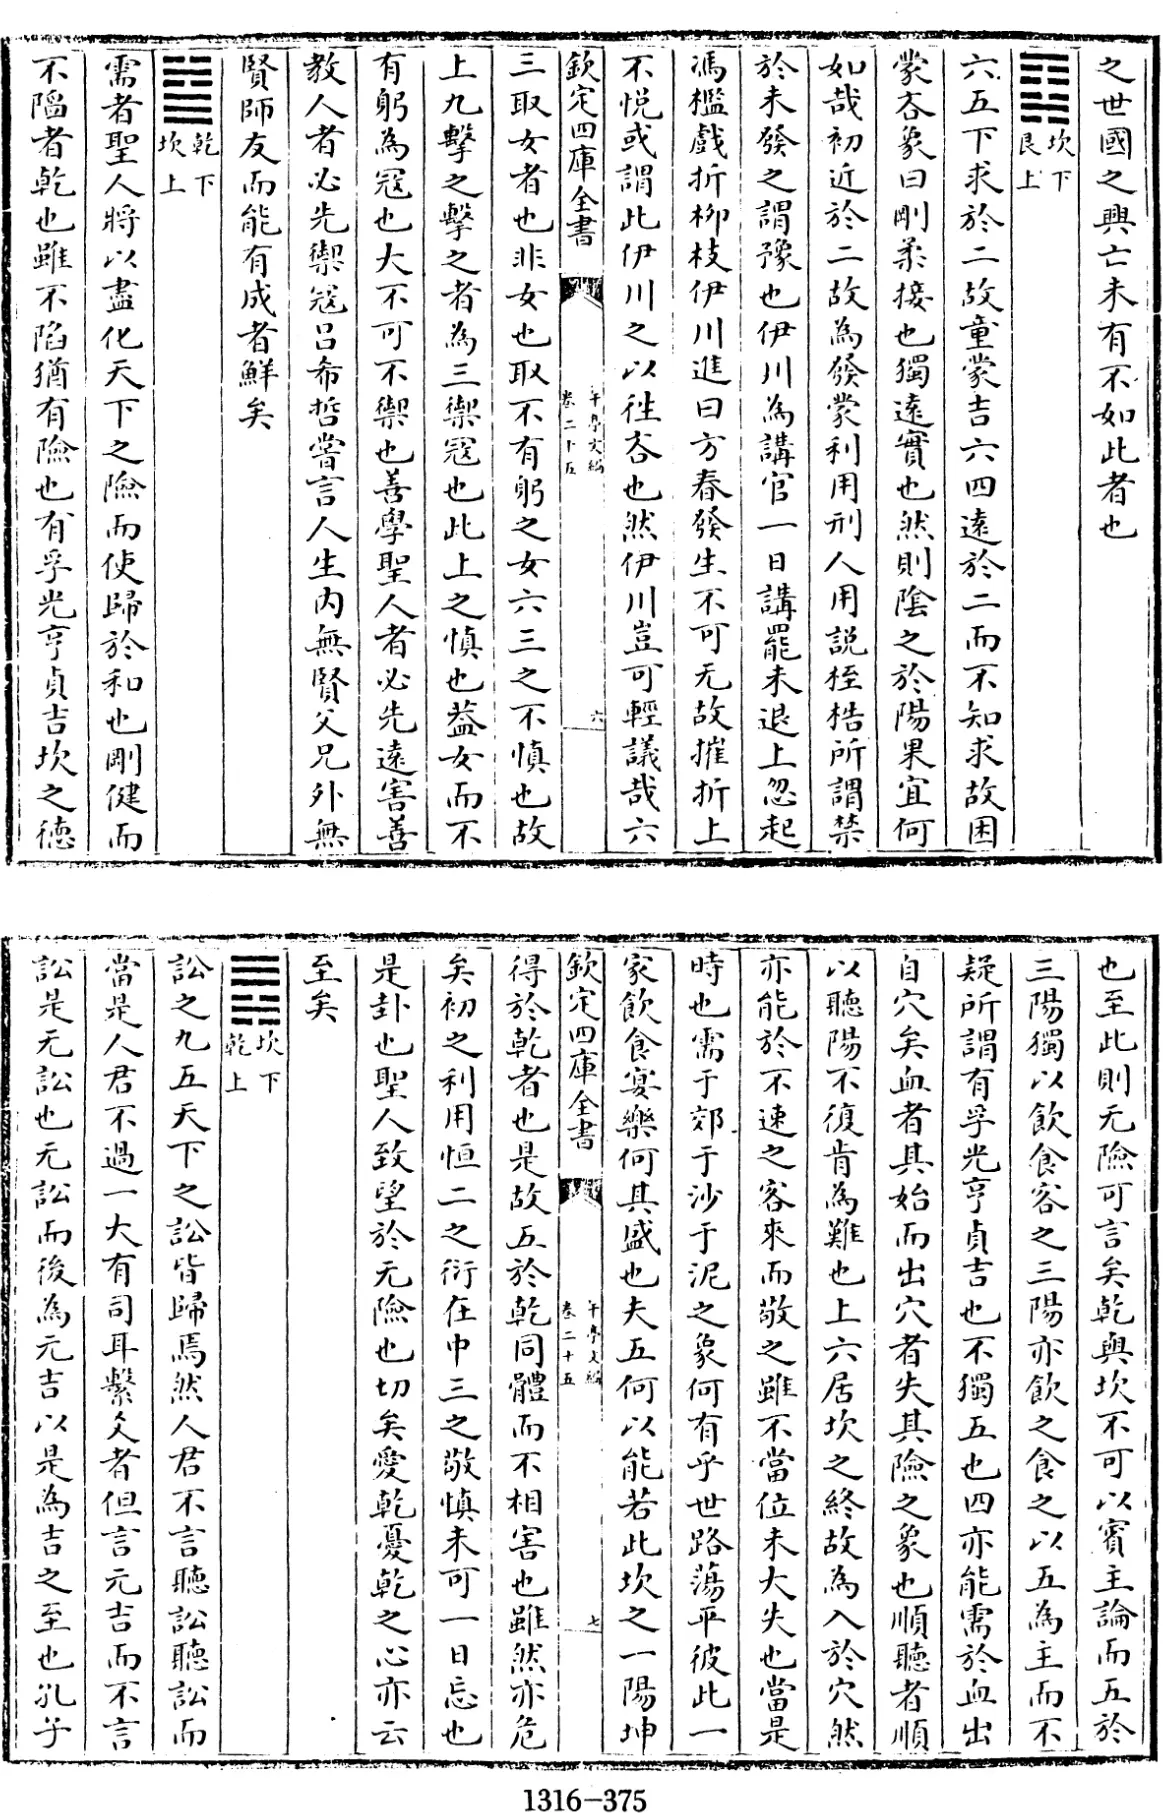 之世國之興亡未有不如此者也
坎下
艮上
六五下求於二故童蒙吉六四逺於二而不知求故困
蒙吝象曰剛柔接也獨逺實也然則陰之於陽果宜何
如哉初近於二故為發蒙利用刑人用説桎梏所謂禁
於未發之謂豫也伊川為講官一日講罷未退上忽起
馮檻戲折柳枝伊川進曰方春發生不可无故摧折上
不悦或謂此伊川之以往吝也然伊川豈可輕議哉六
欽定四庫全書
午亭文編
卷二十五
六
三取女者也非女也取不有躬之女六三之不慎也故
上九擊之擊之者為三禦冦也此上之慎也葢女而不
有躬為冦也大不可不禦也善學聖人者必先逺害善
教人者必先禦冦吕希哲嘗言人生内無賢父兄外無
賢師友而能有成者鮮矣
乾下
坎上
需者聖人將以盡化天下之險而使歸於和也剛健而
不陷者乾也雖不陷猶有險也有孚光亨貞吉坎之德
也至此則无險可言矣乾與坎不可以賓主論而五於
三陽獨以飲食客之三陽亦飲之食之以五為主而不
疑所謂有孚光亨貞吉也不獨五也四亦能需於血出
自穴矣血者其始而出穴者失其險之象也順聽者順
以聽陽不復肯為難也上六居坎之終故為入於穴然
亦能於不速之客來而敬之雖不當位未大失也當是
時也需于郊于沙于泥之象何有乎世路蕩平彼此一
家飲食宴樂何其盛也夫五何以能若此坎之一陽坤
欽定四庫全書
午亭文編
卷二十五
七
得於乾者也是故五於乾同體而不相害也雖然亦危
矣初之利用恒二之衍在中三之敬慎未可一日忘也
是卦也聖人致望於无險也切矣愛乾憂乾之心亦云
至矣
坎下
乾上
訟之九五天下之訟皆歸焉然人君不言聽訟聽訟而
當是人君不過一大有司耳繫爻者但言元吉而不言
訟是无訟也无訟而後為元吉以是為吉之至也孔子
1316-375